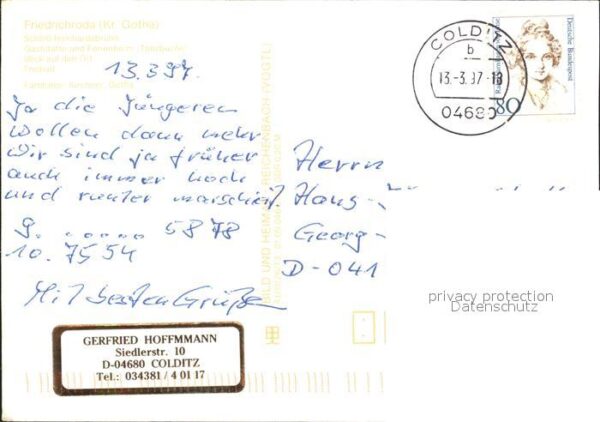 Friedrichroda (Kr. Gotha)
Schloß Reinhardsbrunn
Blick auf den Ort
13.3.97.
Ja die Jüngeren
wollen dann mehr
wir sind ja früher
auch immer hoch
und runter marschiert.
9. ...... 5878
10. 7554
Mit besten Grüßen
GERFRIED HOFFMMANN
Siedlerstr. 10
D-04680 COLDITZ
Tel.: 034381 / 4 01 17
BILD UND HEIMAT REICHENBACH (VOGTL)
COLDITZ
b
13.-3.97-18
04680
Deutsche Bundespost
80
Herrn
Hans-
Georg-
D-041
privacy protection
Datenschutz